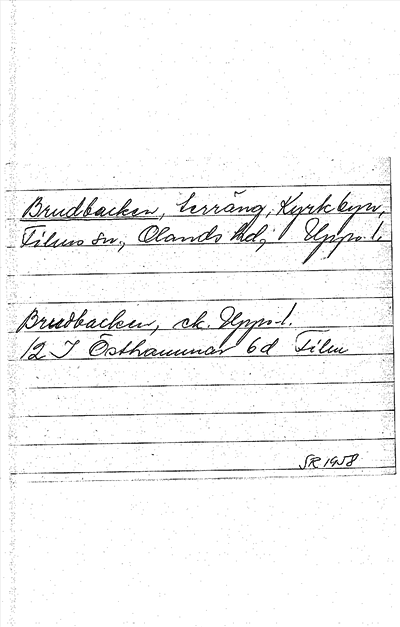 Brudbacken, terräng, Kyrkbyn,
Films sn, Olands hd, Upps. l.
Brudbacken, ek. Upps. l.
12 I Östhammar 6d Film
SR 1958